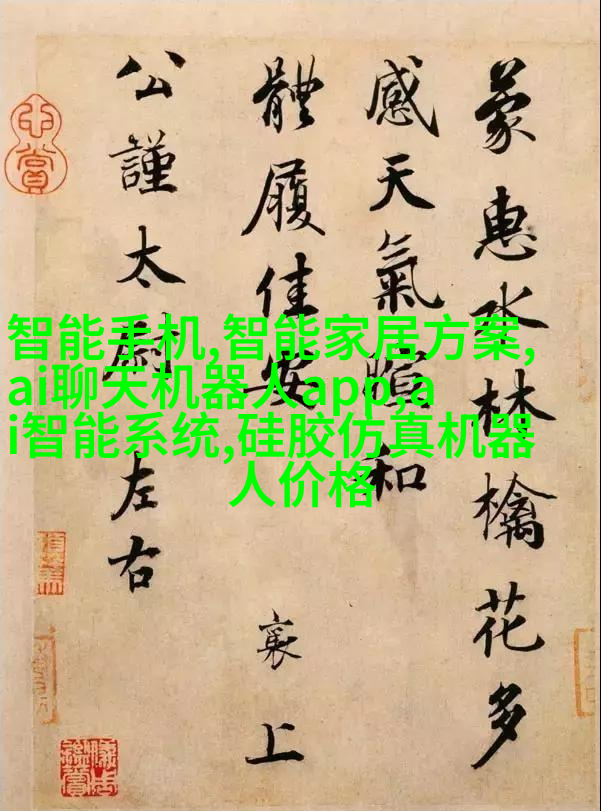 蒙惠水林檎花多
感天氣暄和
體履佳安 襄上
公謹太尉左右
心賞
智能手机,智能家居方案,
ai聊天机器人app,a
i智能系统,硅胶仿真机器
人价格